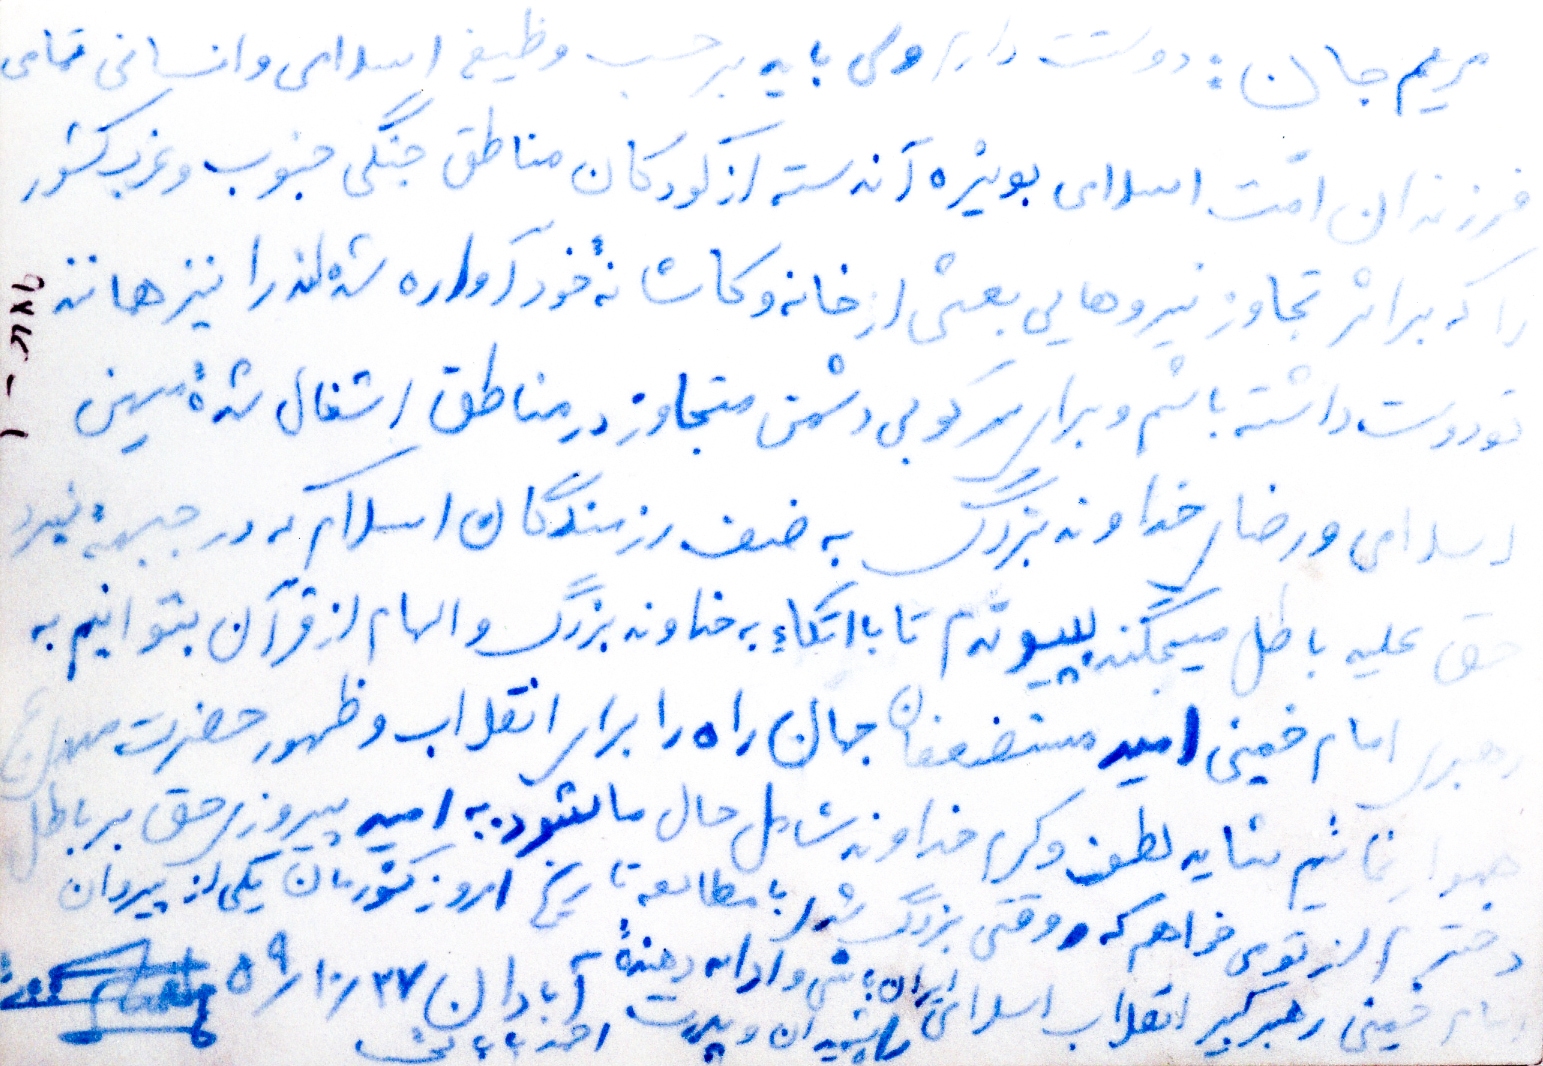 مریم جان : دوستت دارم ولی باید برحسب وظیفهٔ اسلامی و انسانی تمامی
فرزندان امّت اسلامی بویژه آندسته از کودکان مناطق جنگی جنوب و غرب کشور
را که براثر تجاوز نیروهایی بعثی از خانه و کاشانهٔ خود آواره شده‌اند را نیز همانند
تو دوست داشته باشم و برای سرکوبی دشمن متجاوز در مناطق اشغال شدهٔ میهن
اسلامی و رضای خداوند بزرگ به صف رزمندگان اسلام که در جبههٔ نبرد
حق علیه باطل میجنگند بپیوندم تا با اتکاء به خداوند بزرگ و الهام از قرآن بتوانیم به
رهبری امام خمینی امید مستضعفان جهان راه را برای انقلاب و ظهور حضرت مهدی عج
هموار نمائیم شاید لطف و کرم خداوند شامل حال ما بشود. به امید پیروزی حق بر باطل
دخترم از تو می خواهم که وقتی بزرگ شدی با مطالعه تاریخ امروز کشورمان یکی از پیروان
امام خمینی رهبر کبیر انقلاب اسلامی ایران باشی و ادامه دهندهٔ
راه شهیدان و پدرت
آبادان ۲۷ / ۱۰ / ۵۹
احمد